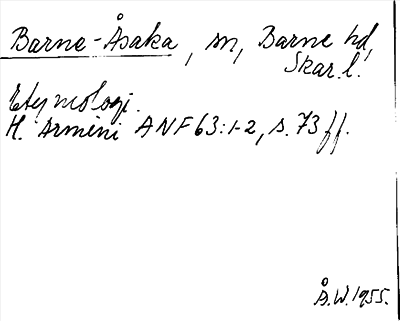 Barne-Åsaka, sn, Barne hd,
Skar. l.
Etymologi.
H. Armini ANF 63:1-2, s. 73 ff.
Å.W. 1955.